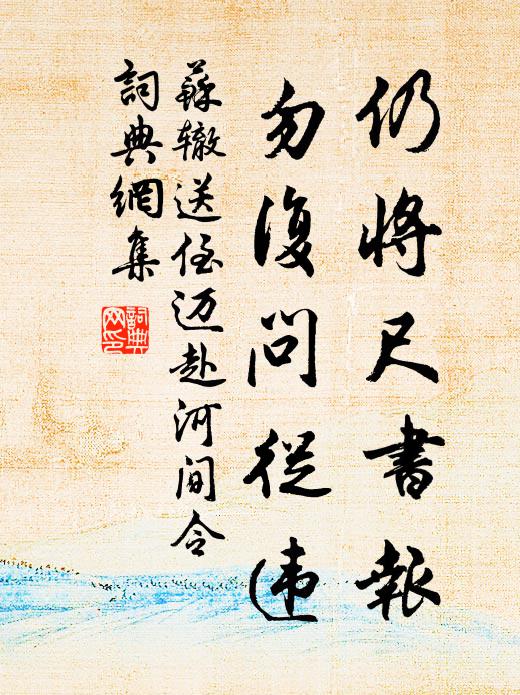 仍將尺書報
勿復問從违
蘇辙送侄迈赴河间令
詞典網集
詞典网印